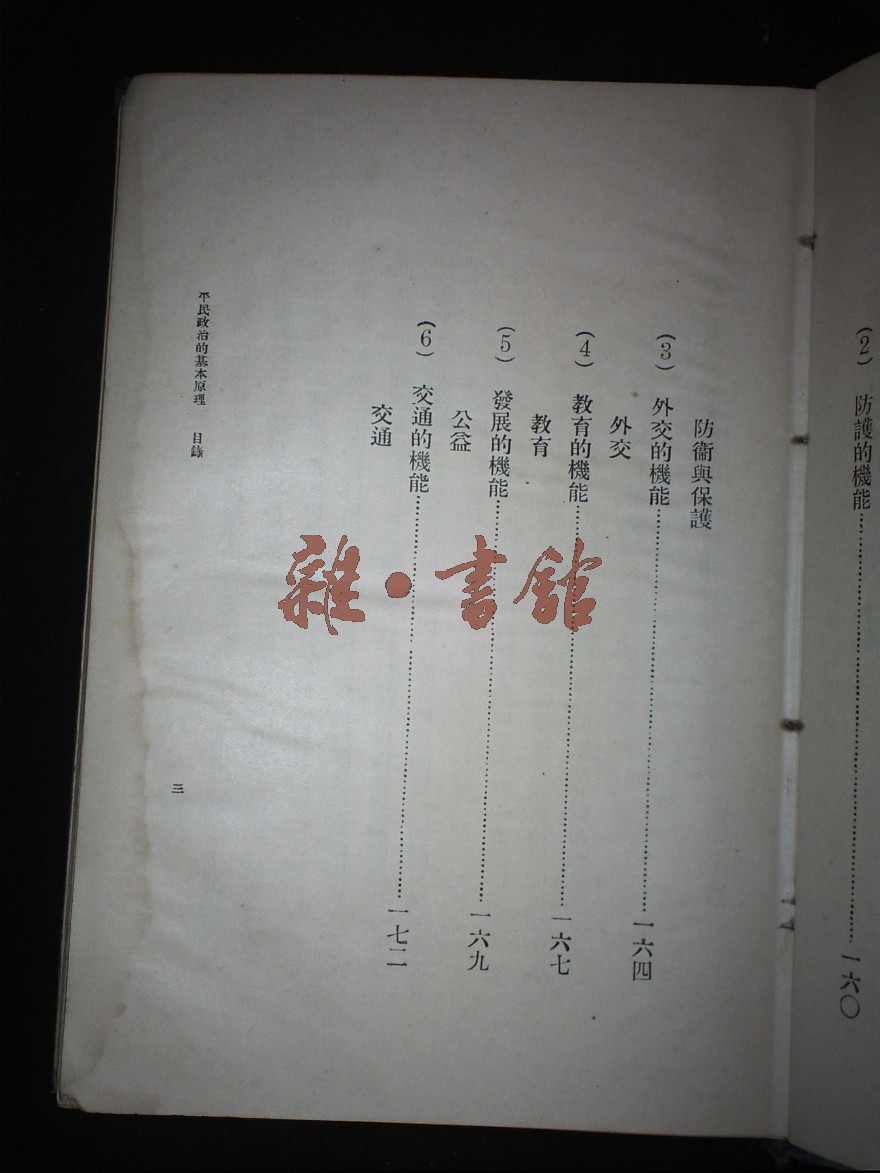 (2) 防護的機能……一六〇
防衞與保護
(3) 外交的機能……一六四
外交
(4) 教育的機能……一六七
教育
(5) 發展的機能……一六九
公益
(6) 交通的機能……一七二
交通
平民政治的基本原理 目錄
三
雜·書館